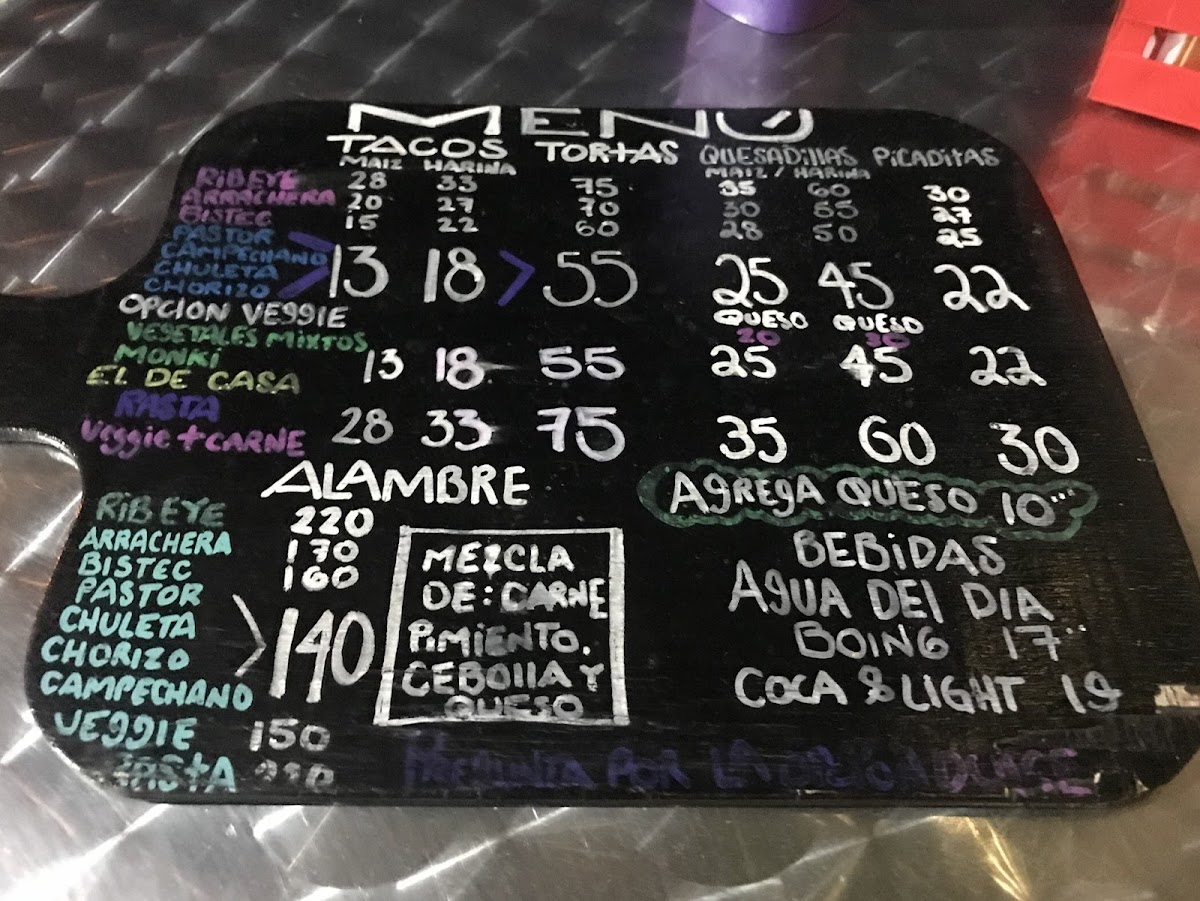 MENÚ
TACOS TORTAS QUESADILLAS PICADITAS
MAIZ HARINA MAIZ / HARINA
RIBEYE 28 33 75 35 60 30
ARRACHERA 20 27 70 30 55 27
BISTEC 15 22 60 28 50 25
PASTOR
CAMPECHANO > 13 18 > 55 25 45 22
CHULETA
CHORIZO
OPCION VEGGIE QUESO QUESO
VEGETALES MIXTOS 20 30
MONKI 13 18 55 25 45 22
EL DE CASA
RASTA
Veggie + CARNE 28 33 75 35 60 30
ALAMBRE
RIBEYE 220
ARRACHERA 170
BISTEC 160
PASTOR
CHULETA > 140
CHORIZO
CAMPECHANO
VEGGIE 150
RASTA
MEZCLA
DE: CARNE
PIMIENTO,
CEBOLLA Y
QUESO
AGREGA QUESO 10
BEBIDAS
AGUA DEL DIA
BOING 17
COCA & LIGHT 19
PREGUNTA POR LA